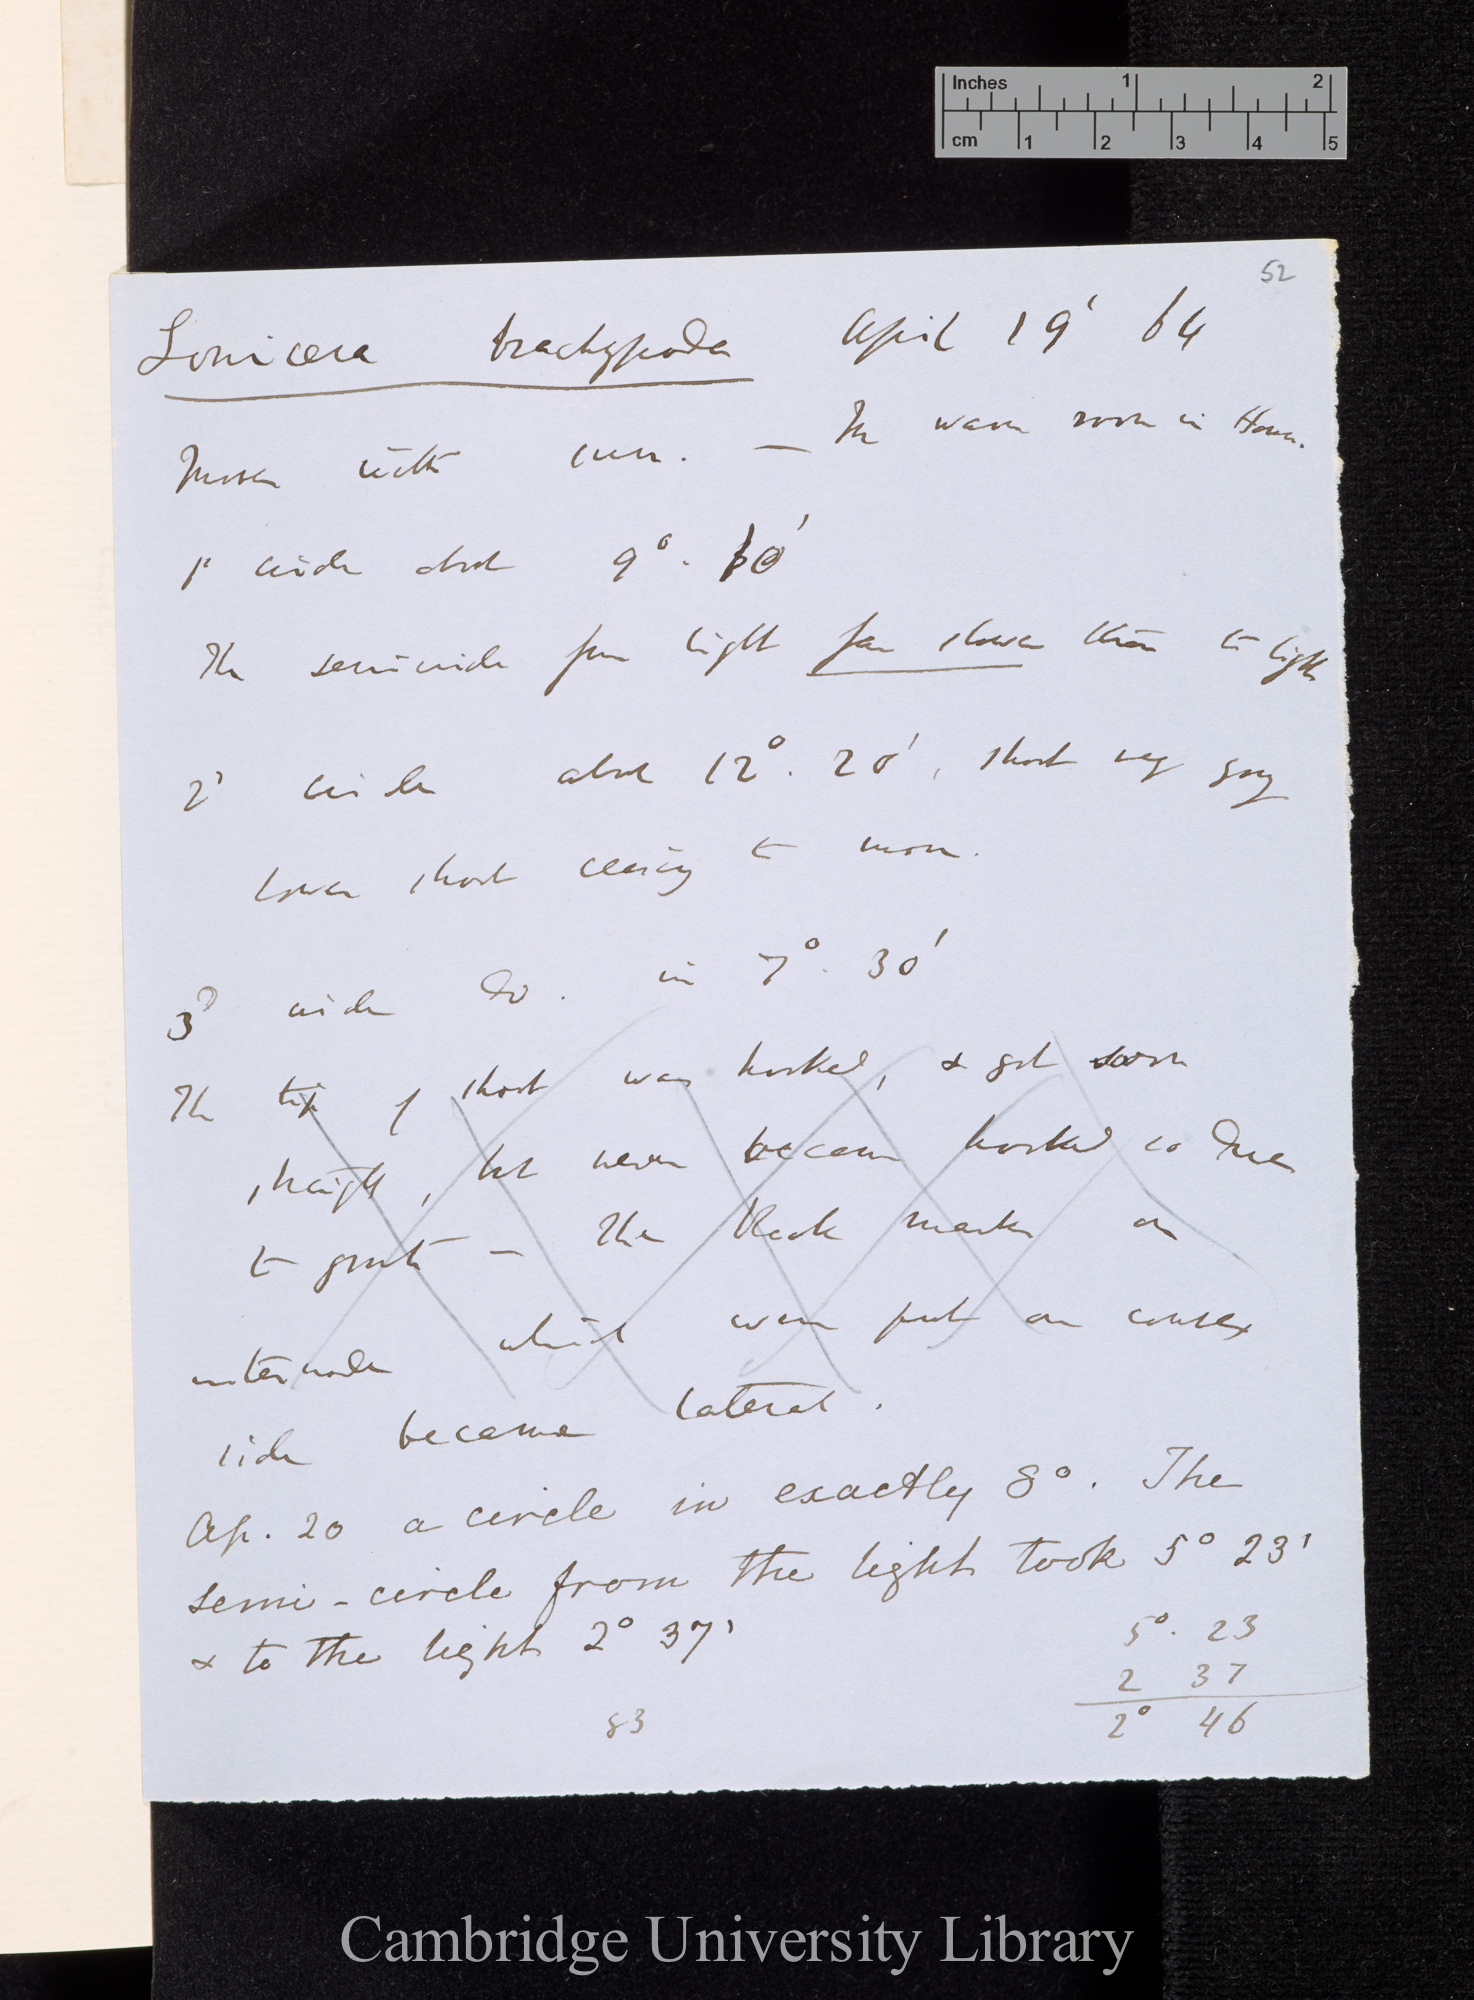 Inches 1 2
cm 1 2 3 4 5
52
Lonicera brachypoda April 19' 64
Moves with sun. — The warm room in House.
1st circle about 9°. 10'
The semicircle from light far slower than to light
2d circle about 12°. 20', shoot very young
lower shoot ceasing to move.
3d circle do. in 7°. 30'
The tip of shoot was hooked, & got soon
straight, but never became hooked so due
to growth — The black marks on
internode which were put on convex
side became lateral.
Ap. 20 a circle in exactly 8°. The
semi-circle from the light took 5° 23'
& to the light 2° 37'
5°. 23
2 37
2° 46
83
Cambridge University Library